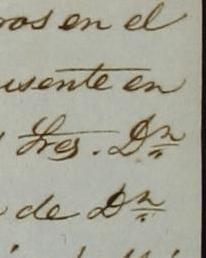 ros en el
usente en
Sres. Dn
de Dn